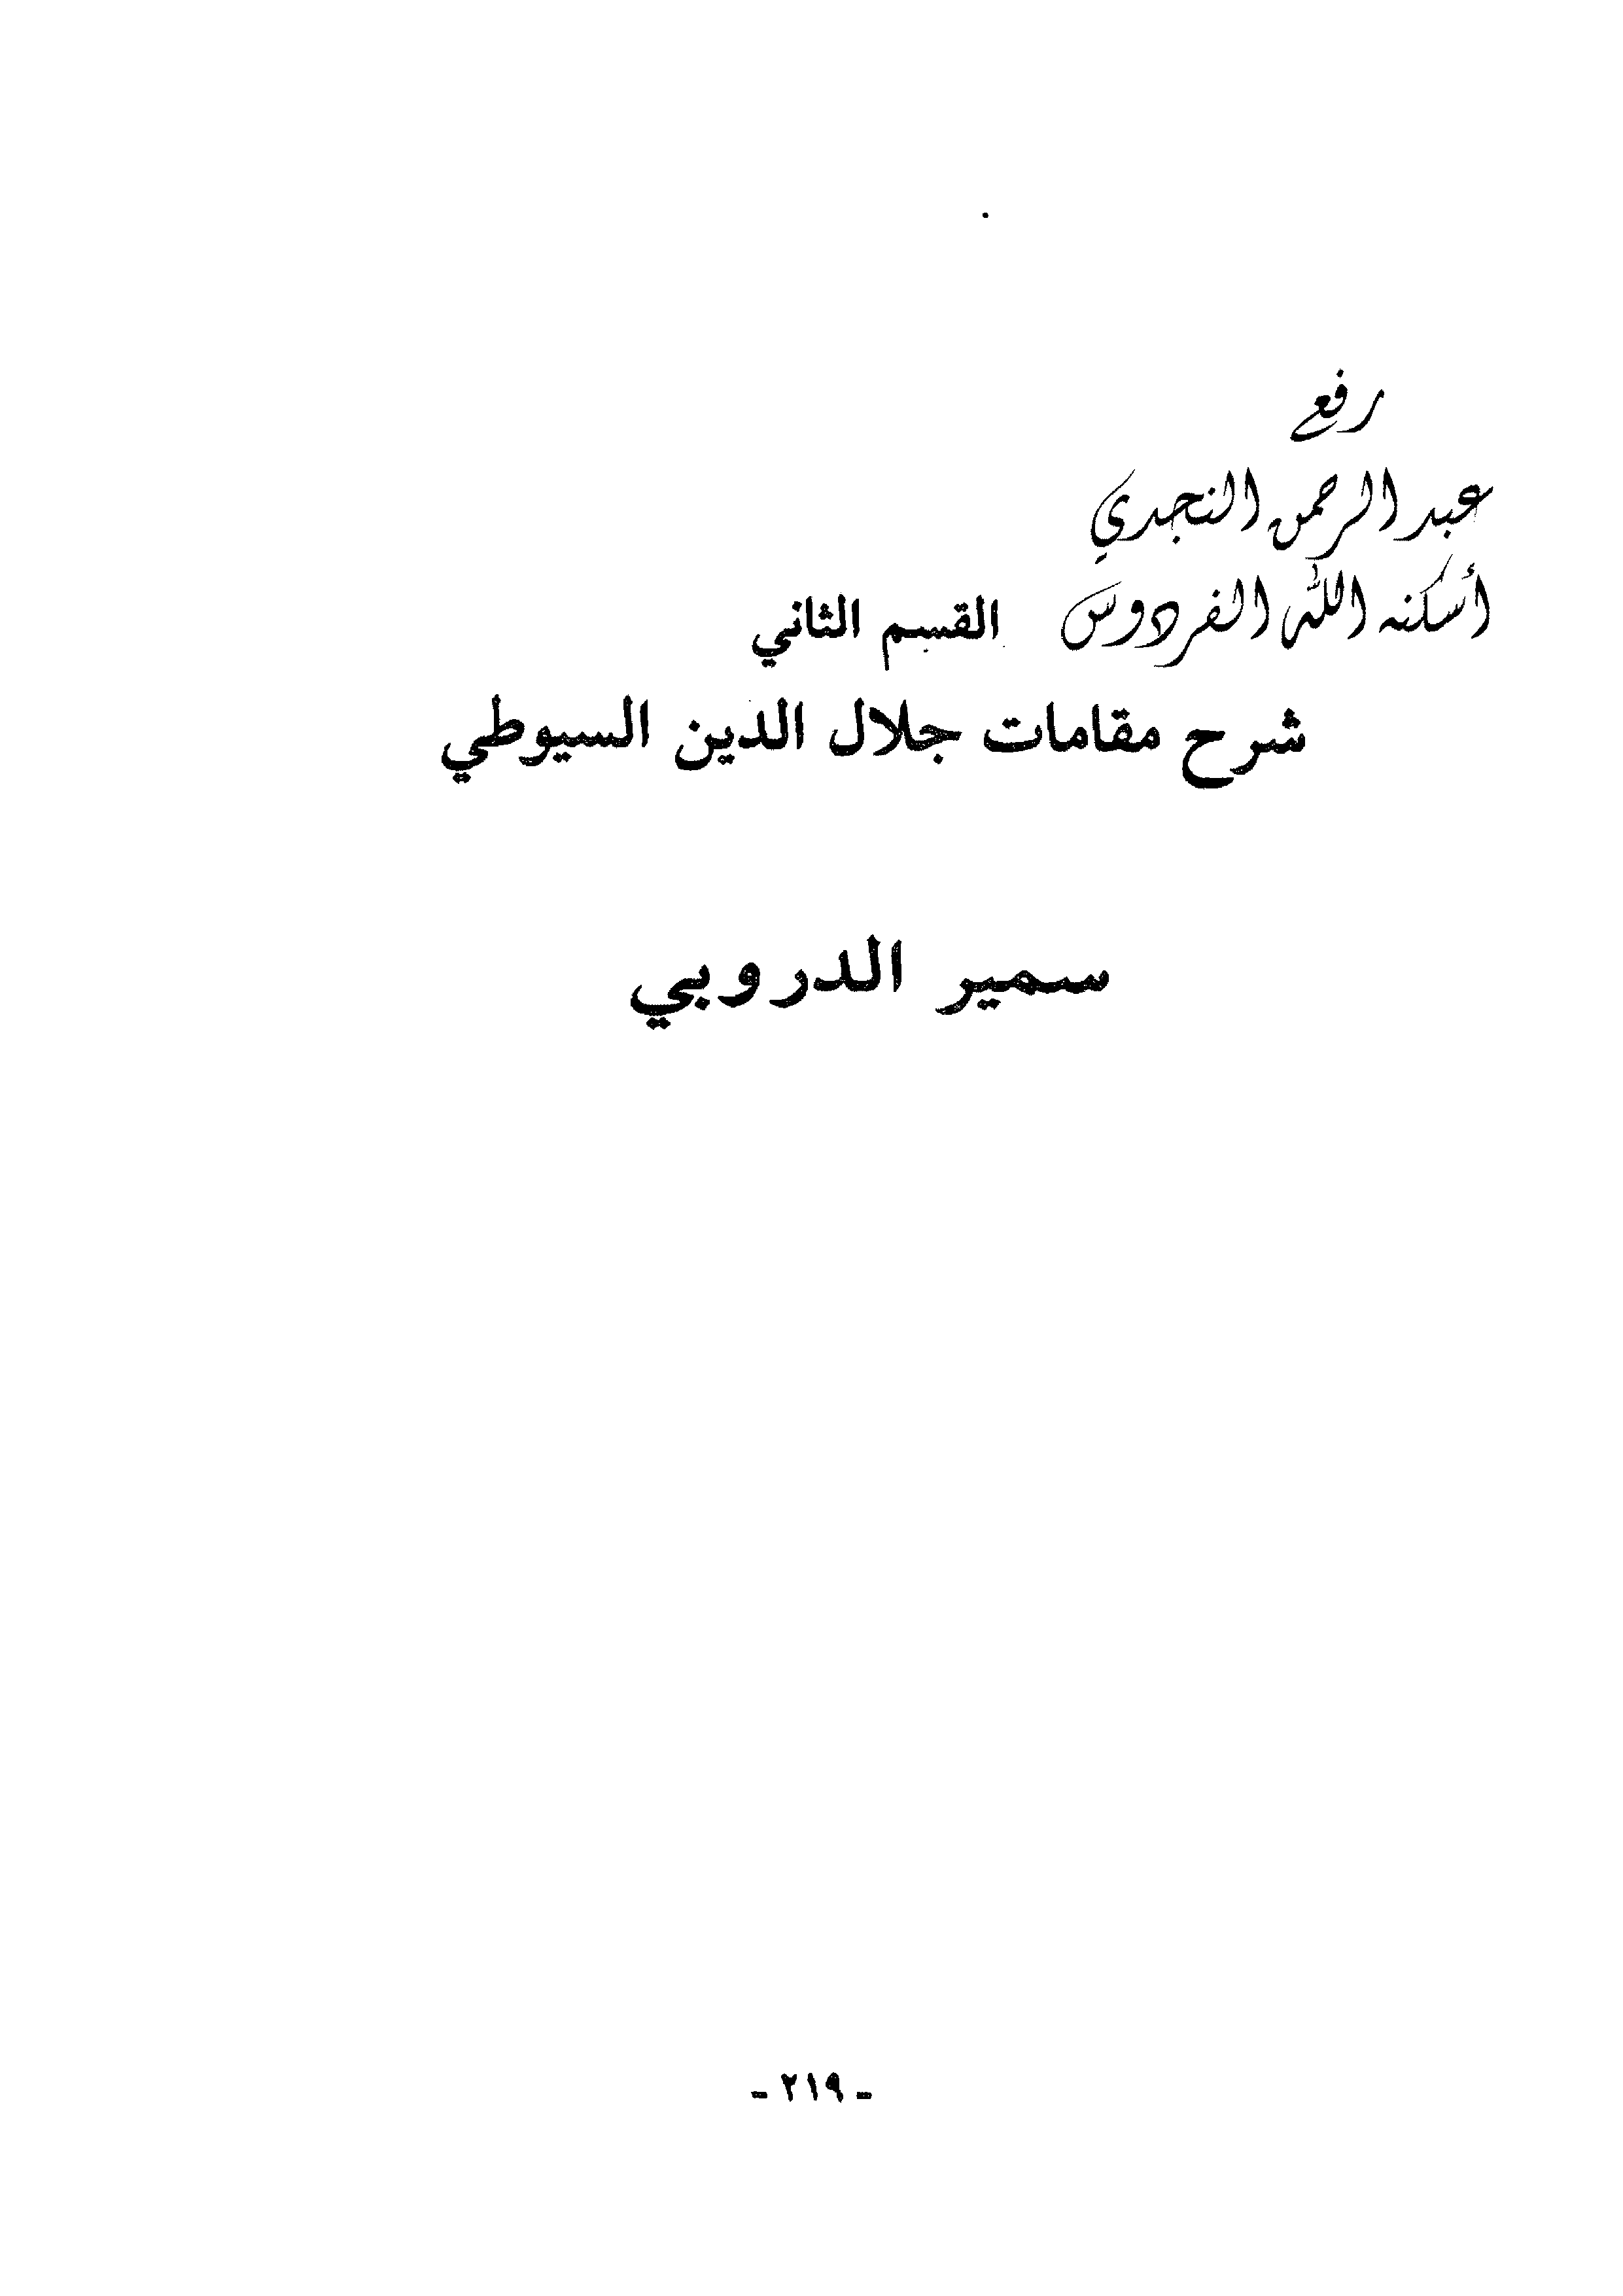 رفع
عبد الرحمن النجدي
أسكنه الله الفردوس
القسم الثاني
شرح مقامات جلال الدين السيوطي
سمير الدروبي
- ٢١٩ -